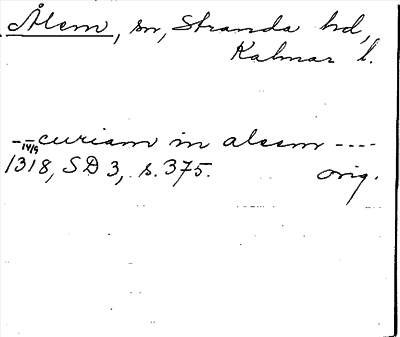 Ålem, sn, Stranda hd,
Kalmar l.
-- curiam in aleem ----
14/9
1318, SD 3, s. 375. orig.